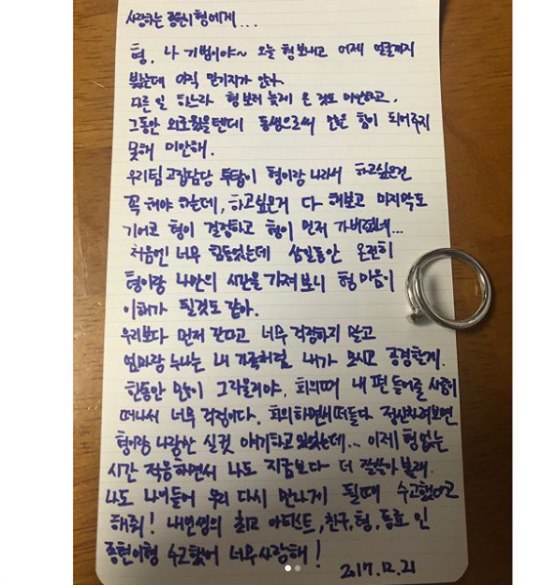 사랑하는 종현이형에게...
형. 나 기범이야~ 오늘 형 보내고 어제 얼굴까지
봤는데 아직 믿기지가 않아
다른 일 하느라 형 보러 늦게 온 것도 미안하고,
그동안 외로웠을텐데 동생으로써 안은 힘이 되어주지
못해 미안해.
우리팀 고집담당 투탑이 형이랑 나라서 하고싶은건
꼭 해야 하는데, 하고싶은거 다 해보고 마지막도
기어코 형이 결정하고 형이 먼저 가버렸네...
처음엔 너무 힘들었는데 삼일동안 온전히
형이랑 나만의 시간을 가져보니 형 마음이
이해가 될것도 같아.
우리보다 먼저 간다고 너무 걱정하지 말고
엄마랑 누나는 내 가족처럼 내가 모시고 공경할게.
한동안 많이 그리울거야. 회의때 내 편 들어줄 사람이
떠나서 너무 걱정이다. 회의하면서 떠들다 정신차려보면
형이랑 나랑만 실컷 얘기하고 있었는데... 이제 형 없는
시간 적응하면서 나도 지금보다 더 잘살아 볼래.
나도 나이들어 우리 다시 만나게 될때 수고했다고
해줘! 내 인생의 최고 아티스트, 친구, 형, 동료 인
종현이형 수고했어 너무 사랑해!
2017.12.21